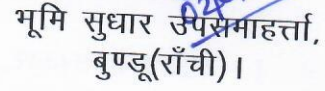 भूमि सुधार उपसमाहर्त्ता,
बुण्डू(राँची)।